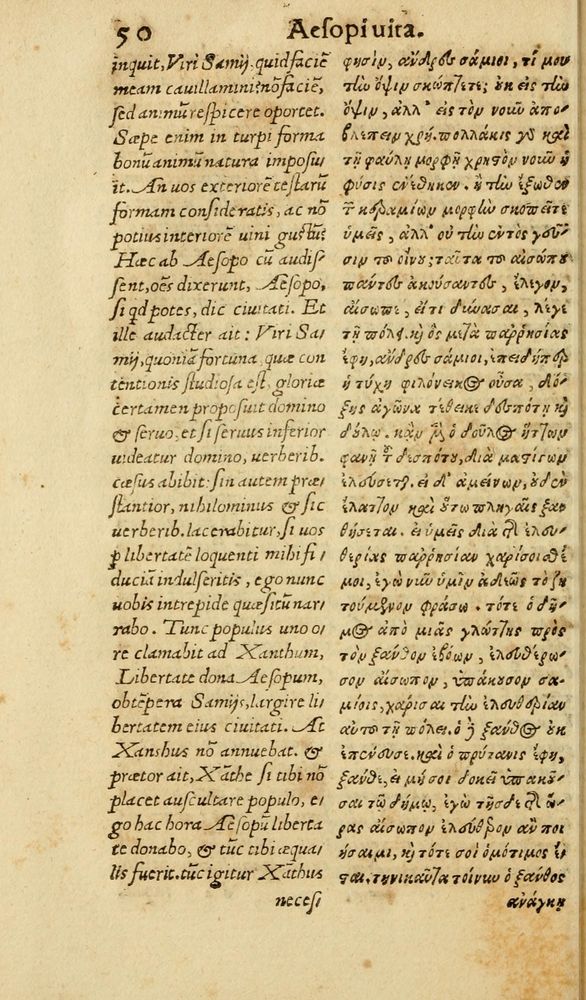 50
Aesopi vita.
inquit, Viri Samij, quid faciē
meam cauillamini: nō faciē,
sed animū respicere oportet.
Sæpe enim in turpi forma
bonū animū natura imposu
it. An uos exteriorē testarū
formam consideratis, ac nō
potius interiorē uini gustū?
Hæc ab Aesopo cū audis
sent, oēs dixerunt, Aesopo,
si qd potes, dic ciuitati. Et
ille audacter ait: Viri Sa/
mij, quoniā fortuna, quæ con
tentionis studiosa est, gloriæ
certamen proposuit domino
& seruo, et si seruus inferior
uideatur domino, uerberib.
cæsus abibit: sin autem præ/
stantior, nihilominus & sic
uerberib. lacerabitur, si uos
ꝑ libertatē loquenti mihi fi/
duciā indulseritis, ego nunc
uobis intrepide quæsitū nar/
rabo. Tunc populus uno o/
re clamabit ad Xanthum,
Libertate dona Aesopum,
obtēpera Samijs, largire li/
bertatem eius ciuitati. At
Xanshus nō annuebat. &
prætor ait, Xāthe si tibi nō
placet auscultare populo, e/
go hac hora Aesopū liberta
te donabo, & tūc tibi æqua/
lis fuerit. tūc igitur Xāthus
necesi
φησὶν, ἄνδρες σάμιοι, τί μου
τὴν ὄψιν σκώπτετε; οὐκ εἰς τὴν
ὄψιν, ἀλλ' εἰς τὸν νοῦν ἀπο/
βλέπειν χρή. πολλάκις γὰρ καὶ
τῇ φαύλῃ μορφῇ χρηστὸν νοῦν ἡ
φύσις ἐνέθηκεν. ἢ τὴν ἔξωθεν
τῶν κεραμίων μορφὴν σκοπεῖτε
ὑμεῖς, ἀλλ' οὐ τὴν ἐντὸς γεῦ/
σιν τοῦ οἴνου; ταῦτα τοῦ αἰσώπου
πάντες ἀκούσαντες, ἔλεγον,
αἴσωπε, εἴ τι δύνασαι, λέγε
τῇ πόλει. καὶ ὃς μετὰ παρρησίας
ἔφη, ἄνδρες σάμιοι, ἐπειδήπερ
ἡ τύχη φιλόνεικος οὖσα, δό/
ξης ἀγῶνα τέθεικε δεσπότῃ καὶ
δούλῳ. κἂν μὲν ὁ δοῦλος ἥττων
φανῇ τοῦ δεσπότου, διὰ μαστίγων
ἐλεύσεται. εἰ δ' ἀμείνων, οὐδὲν
ἔλαττον καὶ οὕτω πληγαῖς ξαν
θήσεται. εἰ ὑμεῖς διὰ τῆς ἐλευ/
θερίας παρρησίαν χαρίσοισθέ
μοι, ἐγὼ νῦν ὑμῖν ἀδεῶς τὸ ζη
τούμενον φράσω. τότε ὁ δῆ/
μος ἀπὸ μιᾶς γλώττης πρὸς
τὸν ξάνθον ἐβόων, ἐλευθέρω/
σον αἴσωπον, ὑπάκουσον σα/
μίοις, χάρισαι τὴν ἐλευθερίαν
αὐτοῦ τῇ πόλει. ὁ δὲ ξάνθος οὐκ
ἐπένευσε. καὶ ὁ πρύτανις ἔφη,
ξάνθε, εἰ μή σοι δοκεῖ ὑπακοῦ/
σαι τῷ δήμῳ, ἐγὼ τῆσδε τῆς ὥ/
ρας αἴσωπον ἐλεύθερον ἂν ποι
ήσαιμι, καὶ τότε σοὶ ὁμότιμος ἔς
ται. τηνικαῦτα τοίνυν ὁ ξάνθος
ἀνάγκῃ